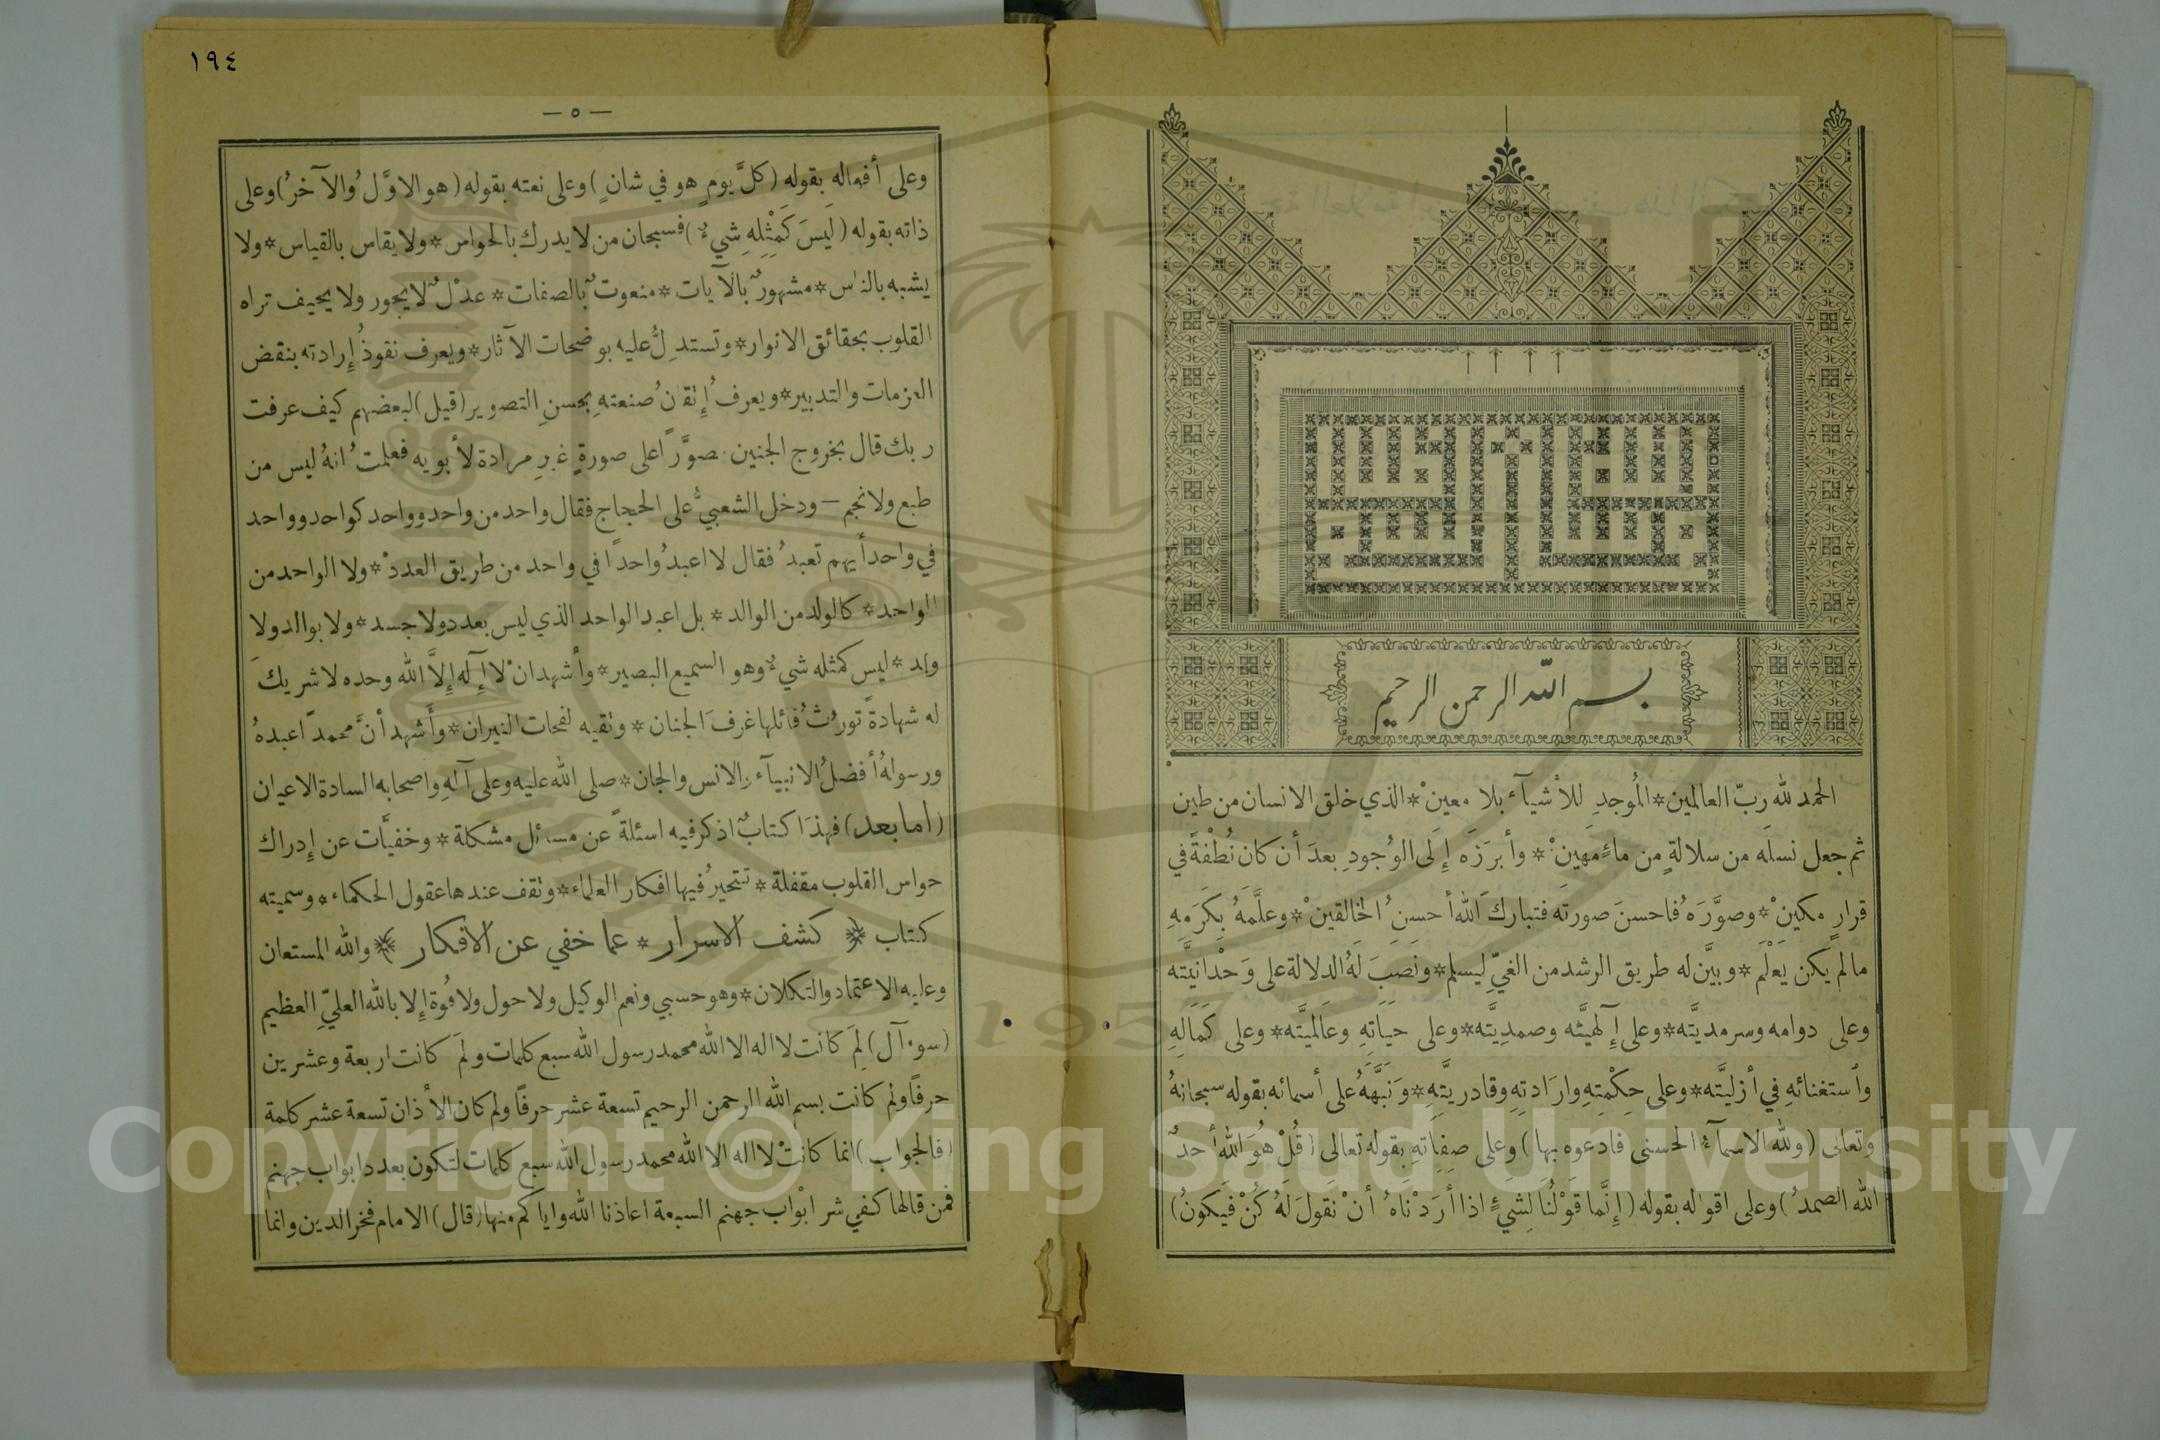 بسم الله الرحمن الرحيم
الحمد لله ربّ العالمين * المُوجدِ للأشيآء بلا معينْ * الذي خلق الانسان من طين
ثم جعل نسلَه من سلالةٍ من ماءٍ مَهِينْ * وأبرَزَه إلَى الوُجودِ بعدَ أن كان نُطْفةً في
قرارٍ مكينْ * وصوَّرَهُ فاحسنَ صورتَه فتباركَ اللهُ أحسنُ الخالقينْ * وعلَّمَهُ بِكَرَمِهِ
مالم يكن يَعْلَم * وبيَّن له طريق الرشد من الغيِّ ليسلم * ونَصَبَ لَهُ الدلالة على وَحْدَانيَّته
وعلى دوامه وسرمديَّته * وعلى إلٓهيَّته وصمدِيَّته * وعلى حيَاتِهِ وعالميَّته * وعلى كَمَالِهِ
وأستغنائهِ في أزليَّته * وعلى حِكْمَتِهِ وارَادتِهِ وقادريتَّهِ * وَنَبَّهَهُ على أسمائه بقوله سبحانهُ
وتعالى (ولله الاسمآءُ الحسنى فادعوه بها) وعلى صِفاتهِ بقوله تعالى (قُلْ هُوَ اللهُ أحدٌ
الله الصمدُ) وعلى اقواله بقوله (إنَّما قَوْلُنَا لِشَيءٍ اذا أرَدْنَاهُ أنْ نَقولَ لَهُ كُنْ فَيَكونُ)
١٩٤
— ٥ —
وعلى أفعاله بقوله (كلَّ يومٍ هو في شانٍ) وعلى نعته بقوله (هو الاوَّلُ والآخرُ) وعلى
ذاته بقوله (لَيسَ كَمِثْلِهِ شيءٌ) فسبحان من لا يدرك بالحواس * ولا يقاس بالقياس * ولا
يشبه بالناس * مشهورٌ بالآيات * منعوتٌ بالصفات * عدْلٌ لا يجور ولا يحيف تراه
القلوب بحقائق الانوار * وتستدلُّ عليه بوضحات الآثار * ويعرف نفوذُ إرادته بنقض
العزمات والتدبير * ويعرف إتقانُ صنعتهِ بحسنِ التصوير (قيل) لبعضهم كيف عرفت
ربك قال بخروج الجنين مصوَّرًا على صورةٍ غيرِ مرادة لأبويه فعلمتُ انهُ ليس من
طبع ولا نجم — ودخل الشعبيُّ على الحجاج فقال واحد من واحد وواحد كواحد وواحد
في واحد أيهم تعبدُ فقال لا اعبدُ واحدًا في واحد من طريق العددْ * ولا الواحد من
الواحد * كالولد من الوالد * بل اعبد الواحد الذي ليس بعدد ولا جسد * ولا بوالد ولا
ولد * ليس كمثله شيءٌ وهو السميع البصير * وأشهد انْ لا إلٓه إلاَّ الله وحده لا شريكَ
له شهادةً تورثُ قائلها غرفَ الجنان * وتقيه لفحات النيران * وأشهد أنَّ محمداً عبدهُ
ورسولهُ أفضلُ الانبيآء والانس والجان * صلى الله عليه وعلى آلهِ واصحابه السادة الاعيان
(اما بعد) فهذَا كتابٌ اذكر فيه اسئلةً عن مسائل مشكلة * وخفيَّات عن إدراك
حواس القلوب مقفلة * تتحيرُ فيها افكار العلماء * وتقف عندها عقول الحكماء * وسميته
كتاب ﴿ كشف الاسرار * عما خفي عن الافكار ﴾ والله المستعان
وعليه الاعتماد والتكلان * وهو حسبي ونعم الوكيل ولا حول ولا قُوة إلا بالله العليِّ العظيم
(سوءآل) لِمَ كانت لا اله الا الله محمد رسول الله سبع كلمات ولمَ كانت اربعة وعشرين
حرفًا ولم كانت بسم الله الرحمن الرحيم تسعة عشر حرفًا ولم كان الأذان تسعة عشر كلمة
(فالجواب) انما كانتْ لا اله الا الله محمد رسول الله سبع كلمات لتكون بعدد ابواب جهنم
فمن قالها كفي شر ابْواب جهنم السبعة اعاذنا الله واياكم منها (قال) الامام فخر الدين وانما
Copyright © King Saud University
1957